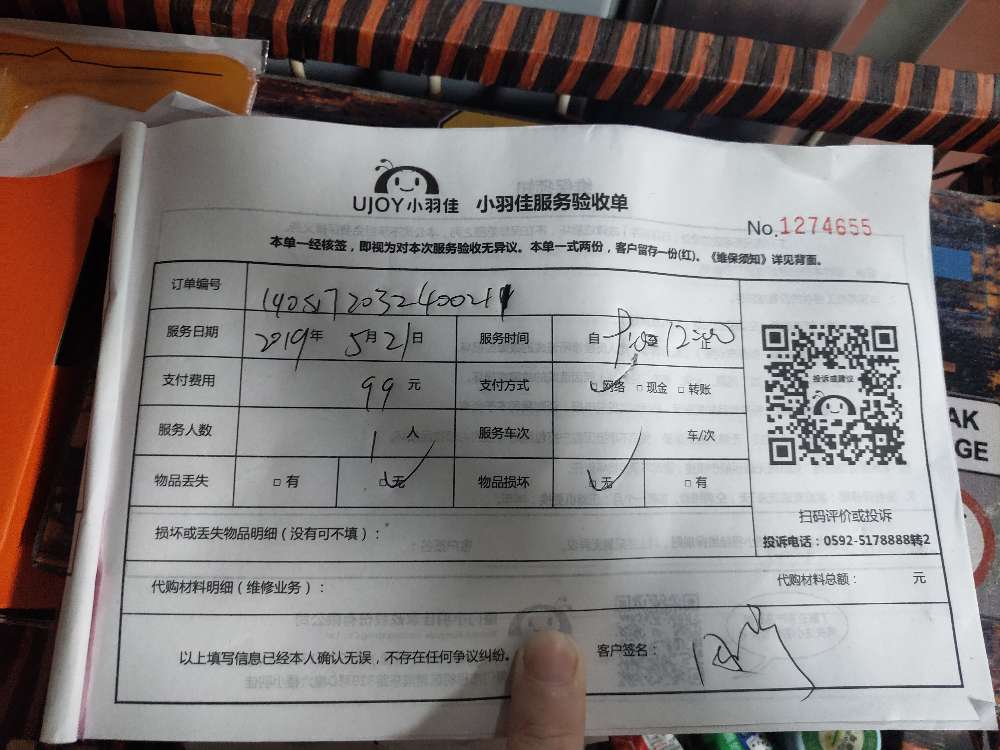 UJOY小羽佳 小羽佳服务验收单
No.1274655
本单一经核签，即视为对本次服务验收无异议。本单一式两份，客户留存一份(红)。《维保须知》详见背面。
订单编号
服务日期 2019年 5月21日 服务时间 自 至12:00止
支付费用 99元 支付方式 □网络 □现金 □转账
投诉或建议
服务人数 1人 服务车次 车/次
物品丢失 □有 □无 物品损坏 □无 □有
扫码评价或投诉
损坏或丢失物品明细（没有可不填）：
投诉电话：0592-5178888转2
代购材料明细（维修业务）：
代购材料总额： 元
以上填写信息已经本人确认无误，不存在任何争议纠纷。 客户签名：
AK
GE